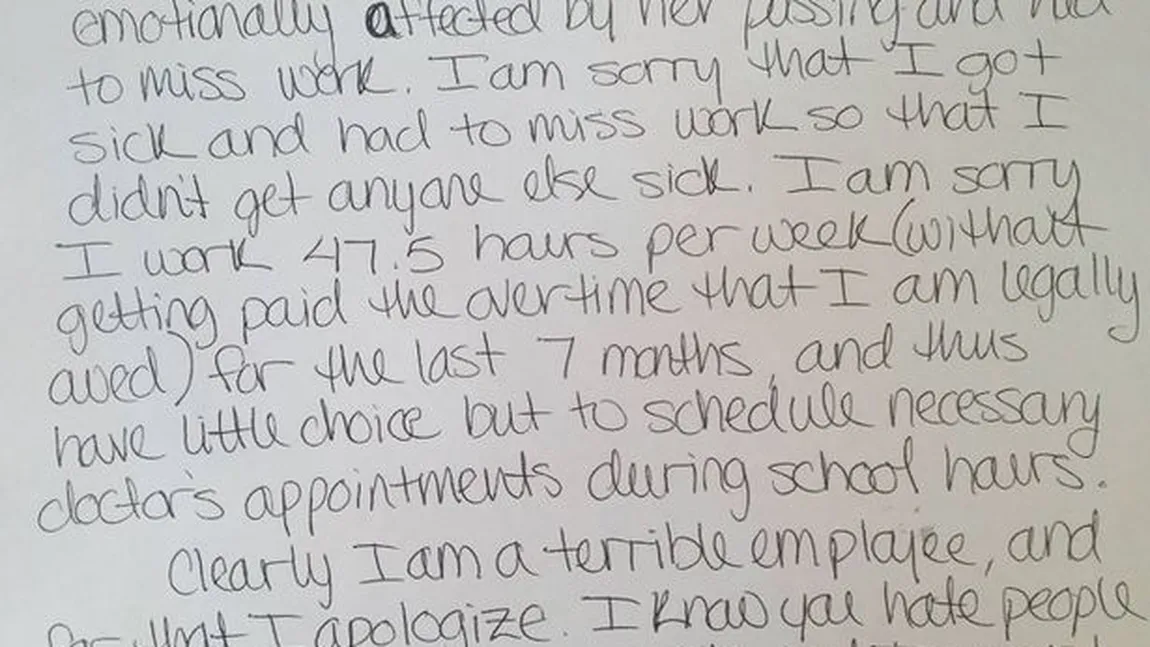 emotionally affected by her passing and had
to miss work. I am sorry that I got
sick and had to miss work so that I
didn't get anyone else sick. I am sorry
I work 47.5 hours per week (without
getting paid the overtime that I am legally
owed) for the last 7 months, and thus
have little choice but to schedule necessary
doctor's appointments during school hours.
Clearly I am a terrible employee, and
for that I apologize. I know you hate people